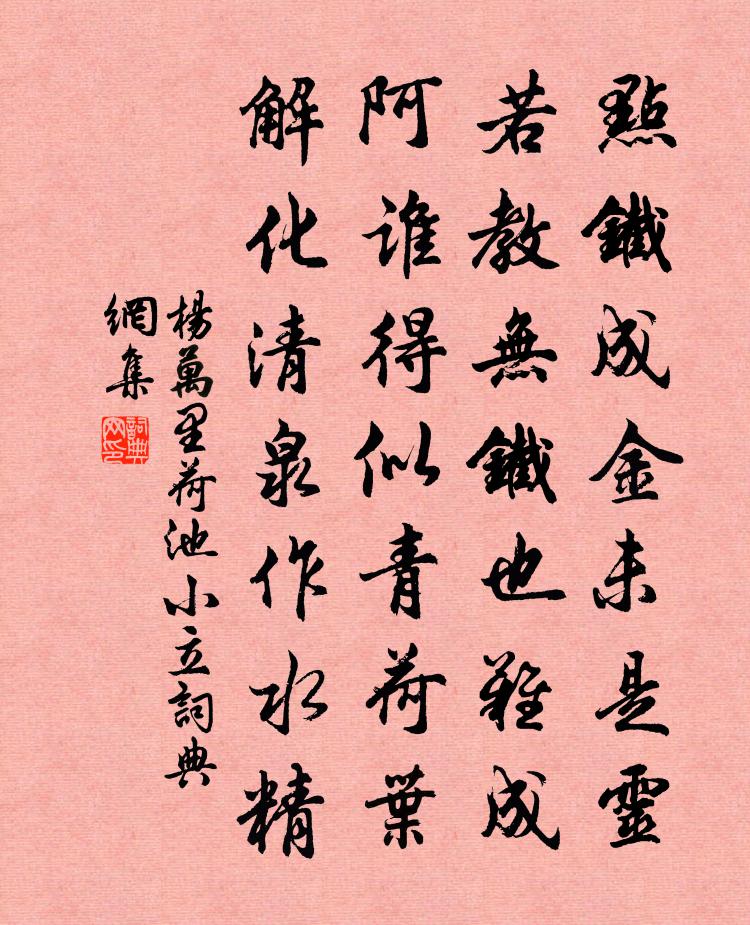 點鐵成金未是靈
若教無鐵也難成
阿誰得似青荷葉
解化清泉作水精
楊萬里荷池小立詞典
網集
詞典
网印